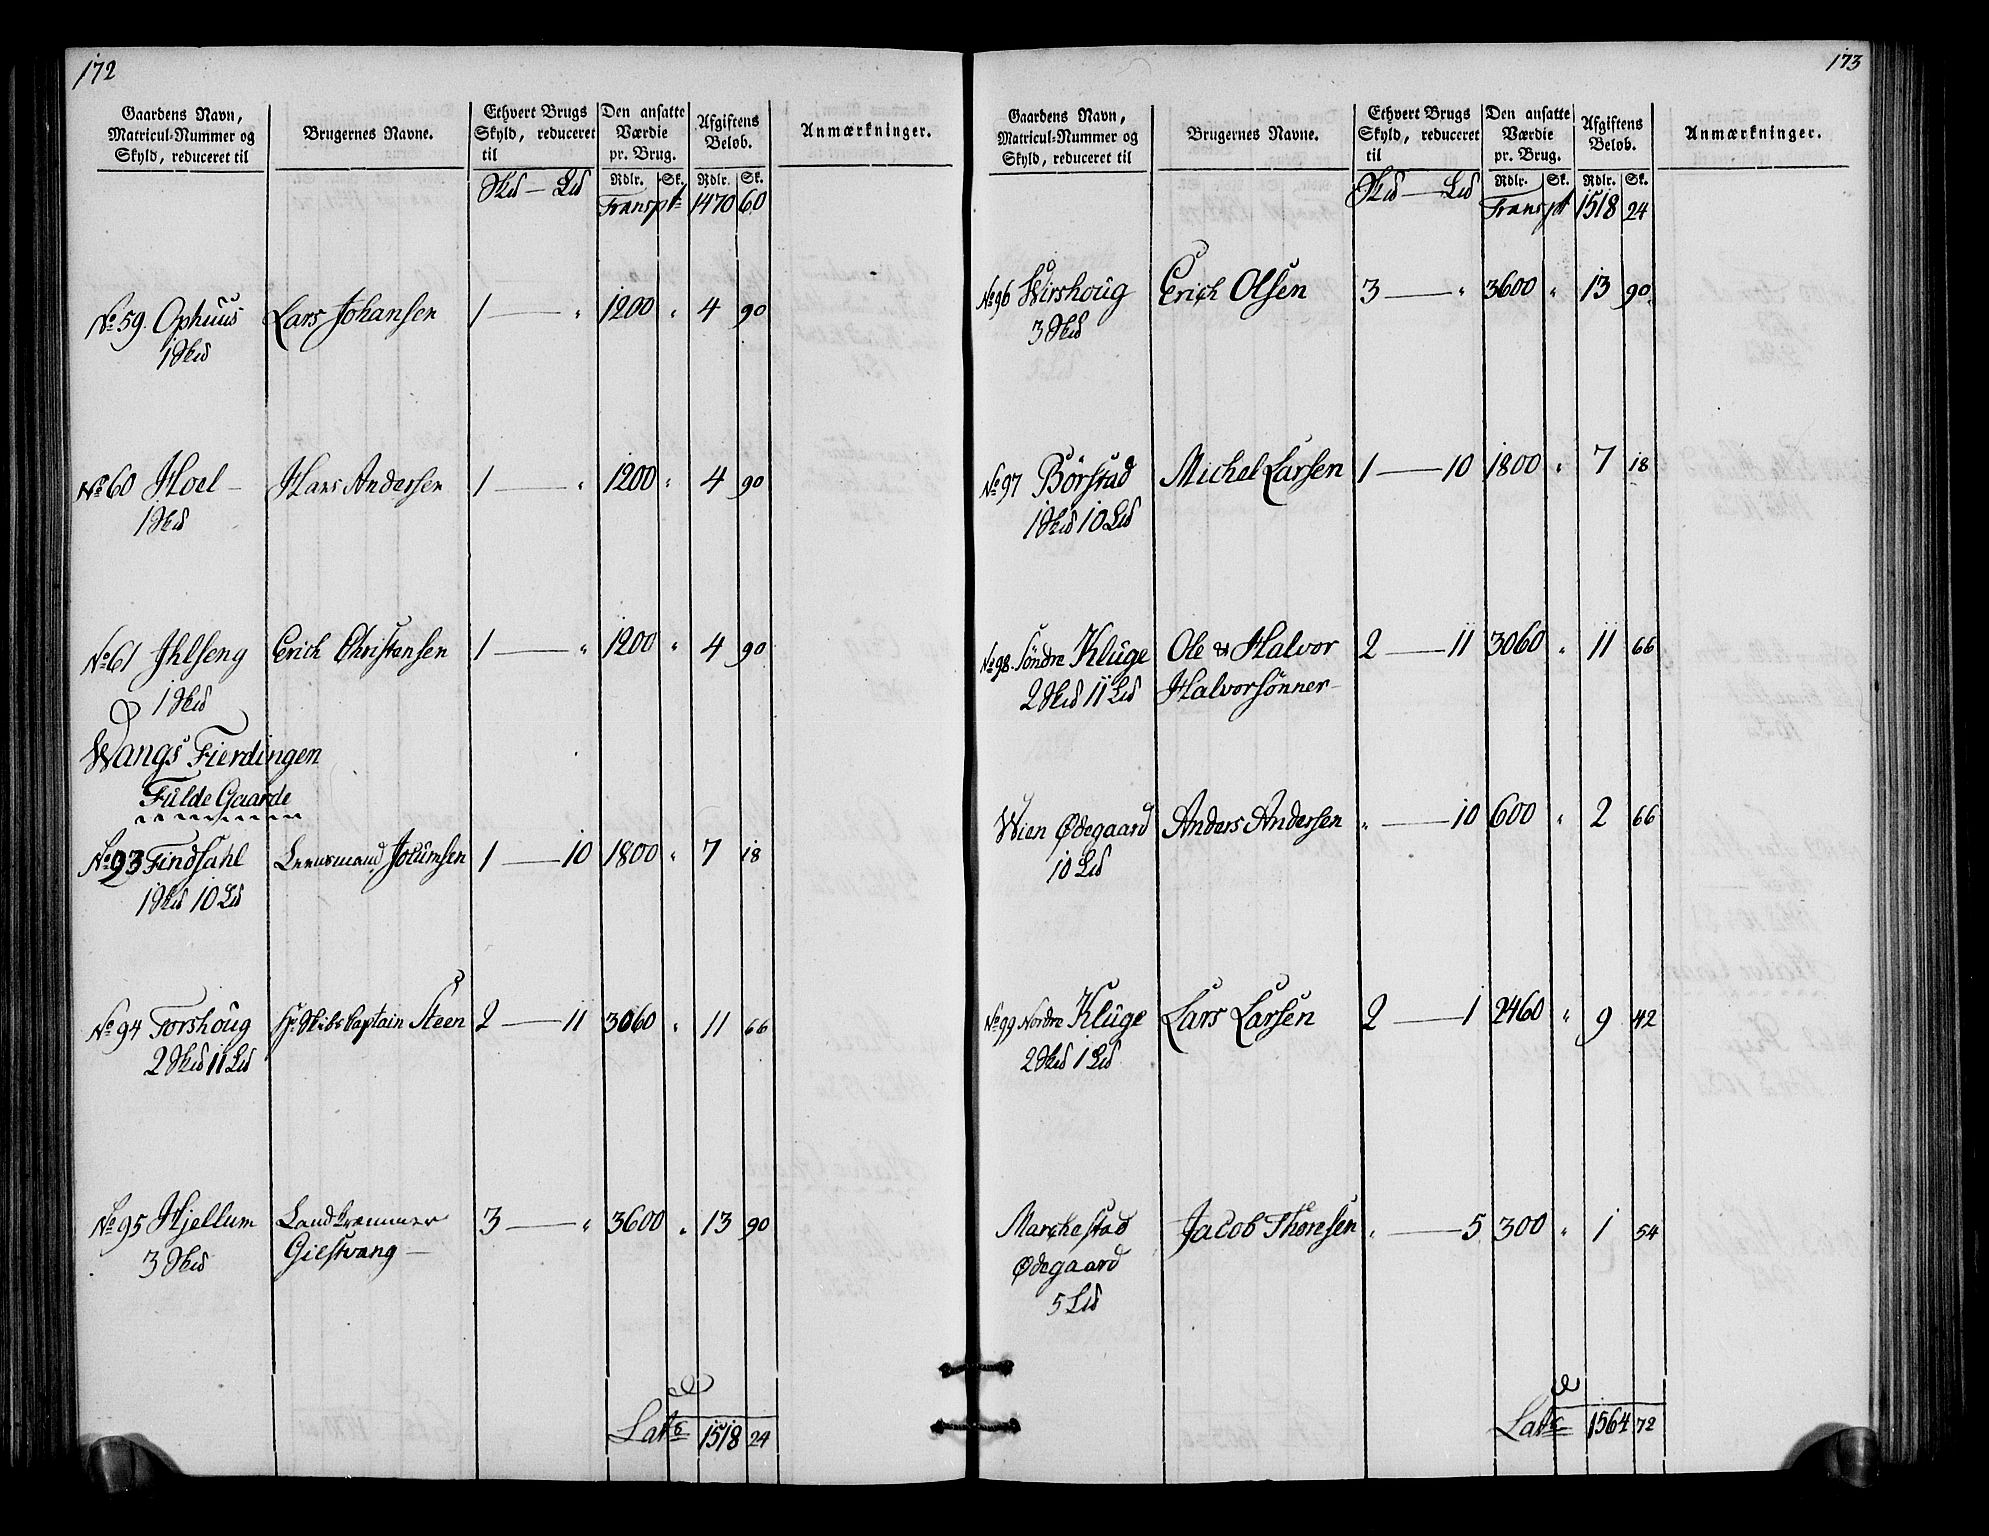 172
Gaardens Navn, Matricul-Nummer og Skyld, reduceret til | Brugernes Navne. | Ethvert Brugs Skyld, reduceret til | Den ansatte Værdie pr. Brug. | Afgiftens Beløb. | Anmærkninger.
Skd — Ld | Rdlr. | Sk. | Rdlr. | Sk.
Transpt 1470 60
No 59. Ophuus Lars Johansen 1 — " 1200 " 4 90
1 Skd
No 60 Hoel — Hans Andersen 1 — " 1200 " 4 90
1 Skd
No 61 Ihlseng Erich Christansen 1 — " 1200 " 4 90
1 Skd
Wangs Fierdingen
Fulde Gaarde
No 93 Findsahl Leensmand Jocumsen 1 — 10 1800 " 7 18
1 Skd 10 Ld
No 94 Torshoug Hr Skibs Captain Steen 2 — 11 3060 " 11 66
2 Skd 11 Ld
No 95 Hjellum Landkremmer 3 — " 3600 " 13 90
3 Skd Gielstvang —
Lats 1518 24
173
Gaardens Navn, Matricul-Nummer og Skyld, reduceret til | Brugernes Navne. | Ethvert Brugs Skyld, reduceret til | Den ansatte Værdie pr. Brug. | Afgiftens Beløb. | Anmærkninger.
Skd — Ld | Rdlr. | Sk. | Rdlr. | Sk.
Transpt 1518 24
No 96 Wirshoug Erich Olsen 3 — " 3600 " 13 90
3 Skd
No 97 Børstad Michel Larsen 1 — 10 1800 " 7 18
1 Skd 10 Ld
No 98. Søndre Kluge Ole & Halvor 2 — 11 3060 " 11 66
2 Skd 11 Ld Halvorsønner —
Wien Ødegaard Anders Andersen " — 10 600 " 2 66
10 Ld
No 99 Nordre Kluge Lars Larsen 2 — 1 2460 " 9 42
2 Skd 1 Ld
Marchestad Jacob Thoresen " — 5 300 " 1 54
Ødegaard
5 Ld
Lats 1564 72